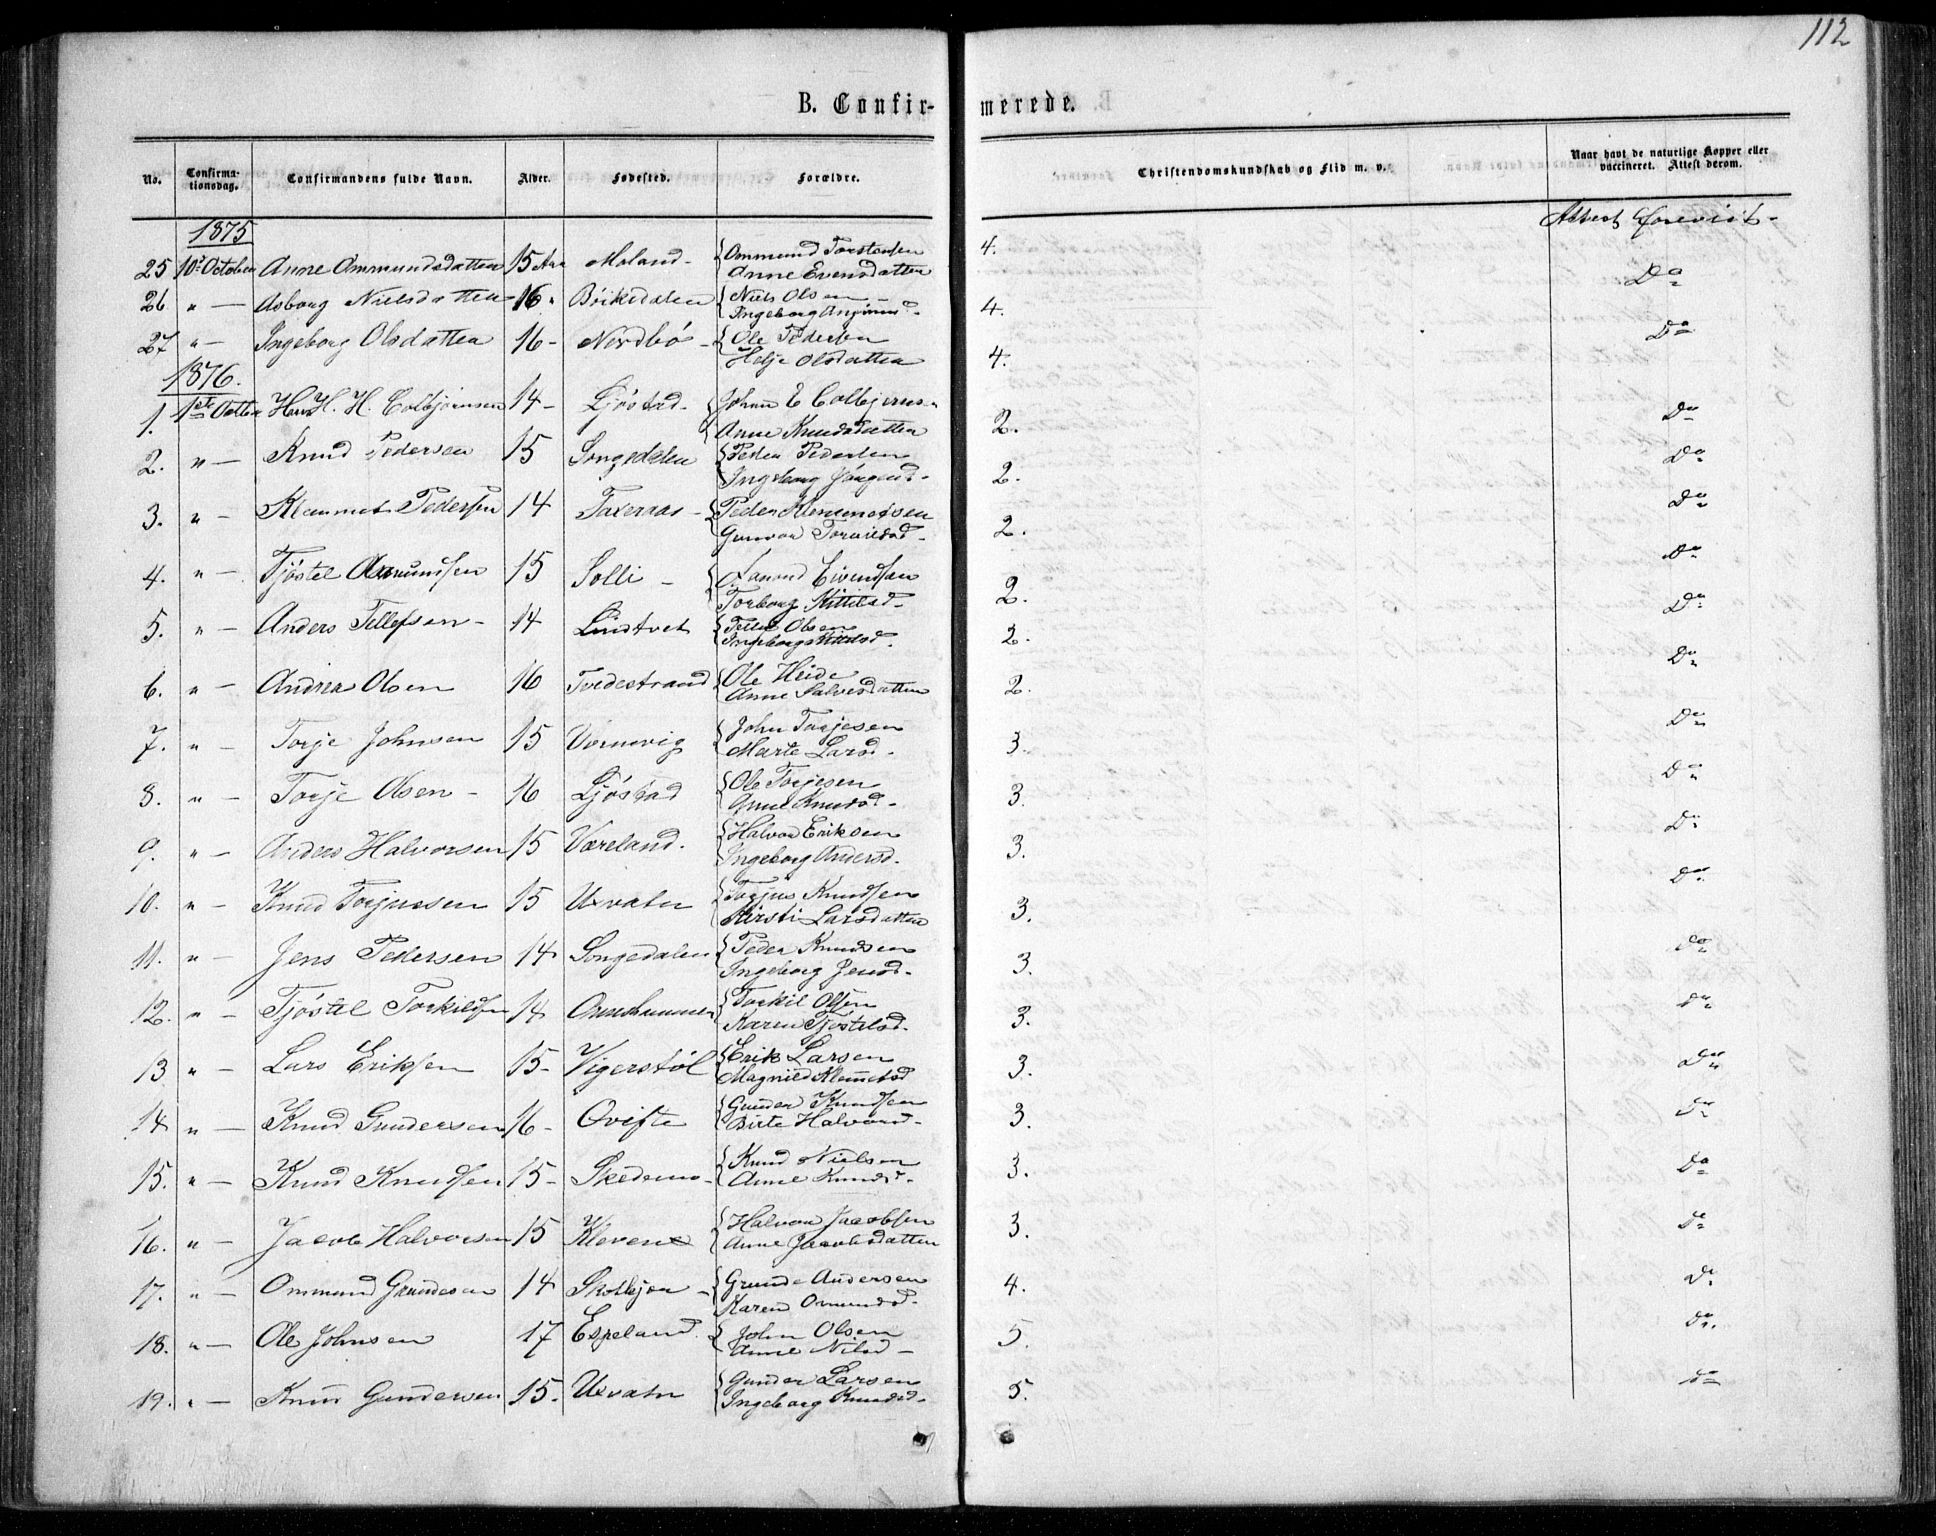 112
B. Confirmerede.
No. Confirmationsdag. Confirmandens fulde Navn. Alder. Fødested. Forældre. Christendomskundskab og Flid m. v. Naar havt de naturlige Kopper eller vaccineret. Attest derom.
1875 Attest forevist -
25 10de October Anne Ommundsdatter 15 Aar Moland - Ommund Torstensen 4.
Anne Evensdatter Do
26. " — Asborg Nielsdatter 16 " Bøikedalen Niels Olsen - 4.
Ingeborg
27 " — Ingeborg Olsdatter 16 - Nordbø - Ole Pedersen 4. Do
Helje Olsdatter
1876.
1. 1ste Hans H. H. Colbjørnsen 14 - Ljøstad - Johan E Colbjørns - 2. Do
Anne Knudsdatter
2. " — Knud Pedersen 15 Songedalen Peder Pedersen 2. Do
Ingeborg Jørgensd -
3. " — Klemmet Pedersen 14 Taxeraas - Peder Klemmetsen 2. Do
Gunvor
4. " — Tjøstel Asmundsen 15 Solli - Eivendsen 2. Do
Torborg Kittilsd -
5. " — Anders Tellefsen - 14 Lindtvet Tellef Olsen 2. Do
Ingeborg Kittilsd.
6. " — Andreas Olsen 16 Tvedestrand Ole Heide 2. Do
Anne Salvesdatter
7. " — Torje Johnsen 15 Vormevig John Torjesen 3. Do
Marte Larsd -
8. " — Torje Olsen - 16 Ljøstad Ole Torjesen 3. Do
Anne Knudsd -
9. " — Anders Halvorsen 15 Væreland. Halvor Eriksen 3. Do
Ingeborg Andersd.
10. " — Knud Torjussen 15 Uxvatn Torjus Knudsen 3. Do
Kirsti Larsdatter
11. " — Jens Pedersen 14 Songedalen Peder Knudsen 3. Do
Ingeborg Jensd -
12. " — Tjøstel Torkildsen 14 Omeshammer Torkil Olsen 3. Do
Karen Tjøstelsd.
13 " — Lars Eriksen 15 - Vigerstøl Erik Larsen 3. Do
Magnild Klemetsd
14 " — Knud Gundersen 16 - Ovifte Gunder Knudsen 3. Do
Birte Halvorsd -
15. " — Knud Knudsen 15 - Skedsmo - Knud Nielsen 3. Do
Anne Knudsd -
16. " — Jacob Halvorsen 15 Klevene Halvor Jacobsen 3. Do
Anne Jacobsdatter
17. " — Ommund Grundesen 14 Skotbjor - Grunde Andersen 4. Do
Karen Omundsd -
18. " — Ole Johnsen 17 Espeland John Olsen 5. Do.
Anne Nilsd -
19. " — Knud Gundersen 15 - Uxvatn Gunder Larsen 5. Do
Ingeborg Knudsd -